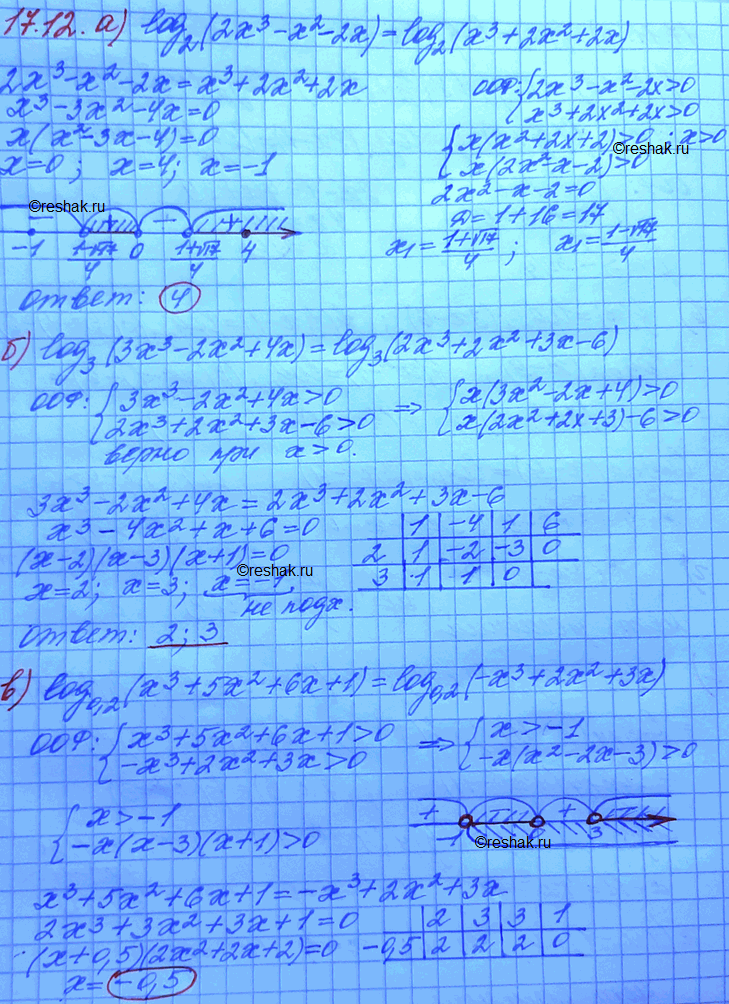 17.12. а) log₂(2x³-x²-2x)=log₂(x³+2x²+2x)
2x³-x²-2x=x³+2x²+2x
x³-3x²-4x=0
x(x²-3x-4)=0
x=0; x=4; x=-1
ООФ: {2x³-x²-2x>0
x³+2x²+2x>0
{x(x²+2x+2)>0; x>0
©reshak.ru
x(2x²-x-2)>0
2x²-x-2=0
D=1+16=17
x₁=(1+√17)/4; x₁=(1-√17)/4
©reshak.ru
- + - +
-1 (1-√17)/4 0 (1+√17)/4 4
ответ: 4
б) log₃(3x³-2x²+4x)=log₃(2x³+2x²+3x-6)
ООФ: {3x³-2x²+4x>0 => {x(3x²-2x+4)>0
2x³+2x²+3x-6>0 x(2x²+2x+3)-6>0
верно при x>0.
3x³-2x²+4x=2x³+2x²+3x-6
x³-4x²+x+6=0
(x-2)(x-3)(x+1)=0
©reshak.ru
x=2; x=3; x=-1
не подх.
1 -4 1 6
2 1 -2 -3 0
3 1 1 0
ответ: 2; 3
в) log₀,₂(x³+5x²+6x+1)=log₀,₂(-x³+2x²+3x)
ООФ: {x³+5x²+6x+1>0 => {x>-1
-x³+2x²+3x>0 -x(x²-2x-3)>0
{x>-1
-x(x-3)(x+1)>0
+ - + -
-1 3
©reshak.ru
x³+5x²+6x+1=-x³+2x²+3x
2x³+3x²+3x+1=0
(x+0,5)(2x²+2x+2)=0
x=-0,5
2 3 3 1
-0,5 2 2 2 0